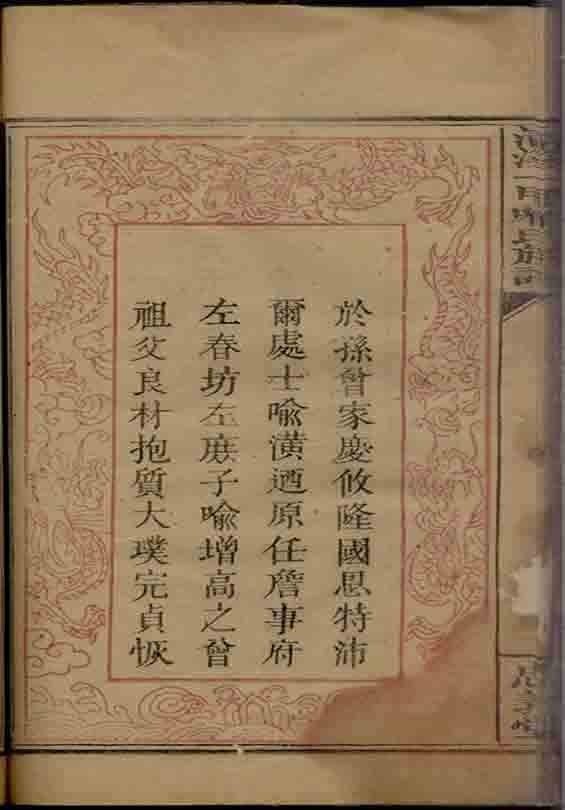 於孫曾家慶攸隆國恩特沛
爾處士喻潢迺原任詹事府
左春坊左庶子喻增高之曾
祖父良材抱質大璞完貞恢